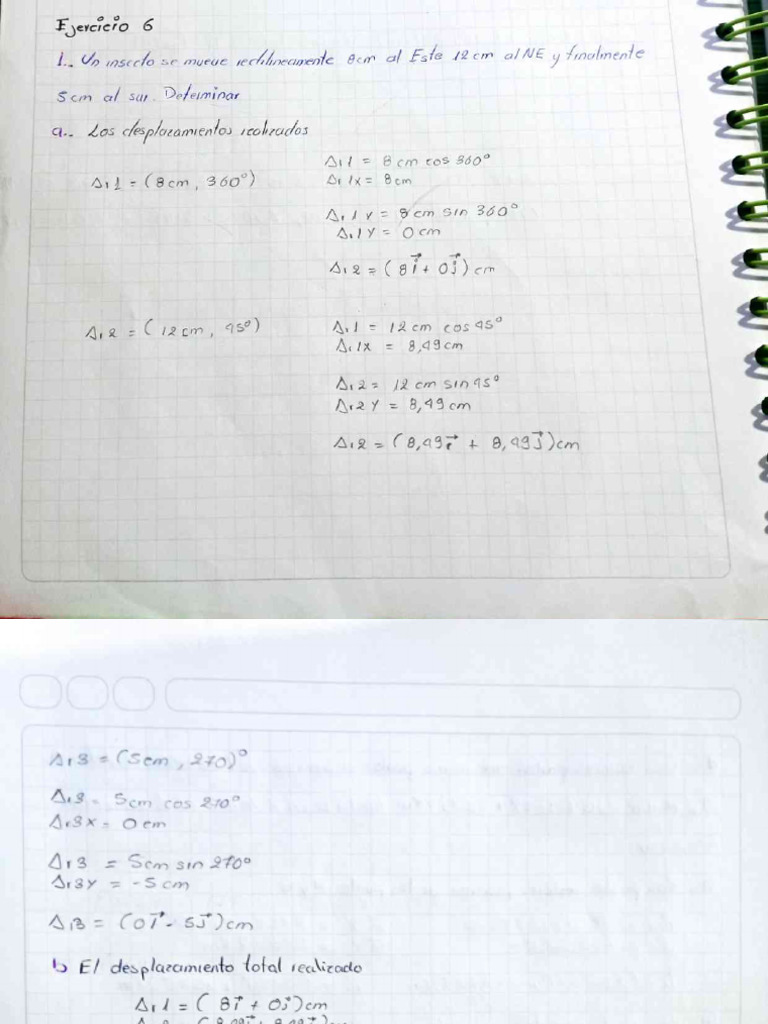 Ejercicio 6
1.. Un insecto se mueve rectilineamente 8cm al Este 12 cm al NE y finalmente
5cm al sur. Determinar
a.. Los desplazamientos realizados
Δr1 = (8cm, 360°)
Δr1 = 8cm cos 360°
Δr1x = 8cm
Δr1y = 8cm sin 360°
Δr1y = 0cm
Δr2 = (8i⃗ + 0j⃗) cm
Δr2 = (12cm, 45°)
Δr1 = 12cm cos 45°
Δr1x = 8,49cm
Δr2 = 12cm sin 45°
Δr2y = 8,49cm
Δr2 = (8,49i⃗ + 8,49j⃗)cm
Δr3 = (5cm, 270)°
Δr3 = 5cm cos 270°
Δr3x = 0cm
Δr3 = 5cm sin 270°
Δr3y = -5cm
Δr3 = (0i⃗ - 5j⃗)cm
b El desplazamiento total realizado
Δr1 = (8i⃗ + 0j⃗)cm